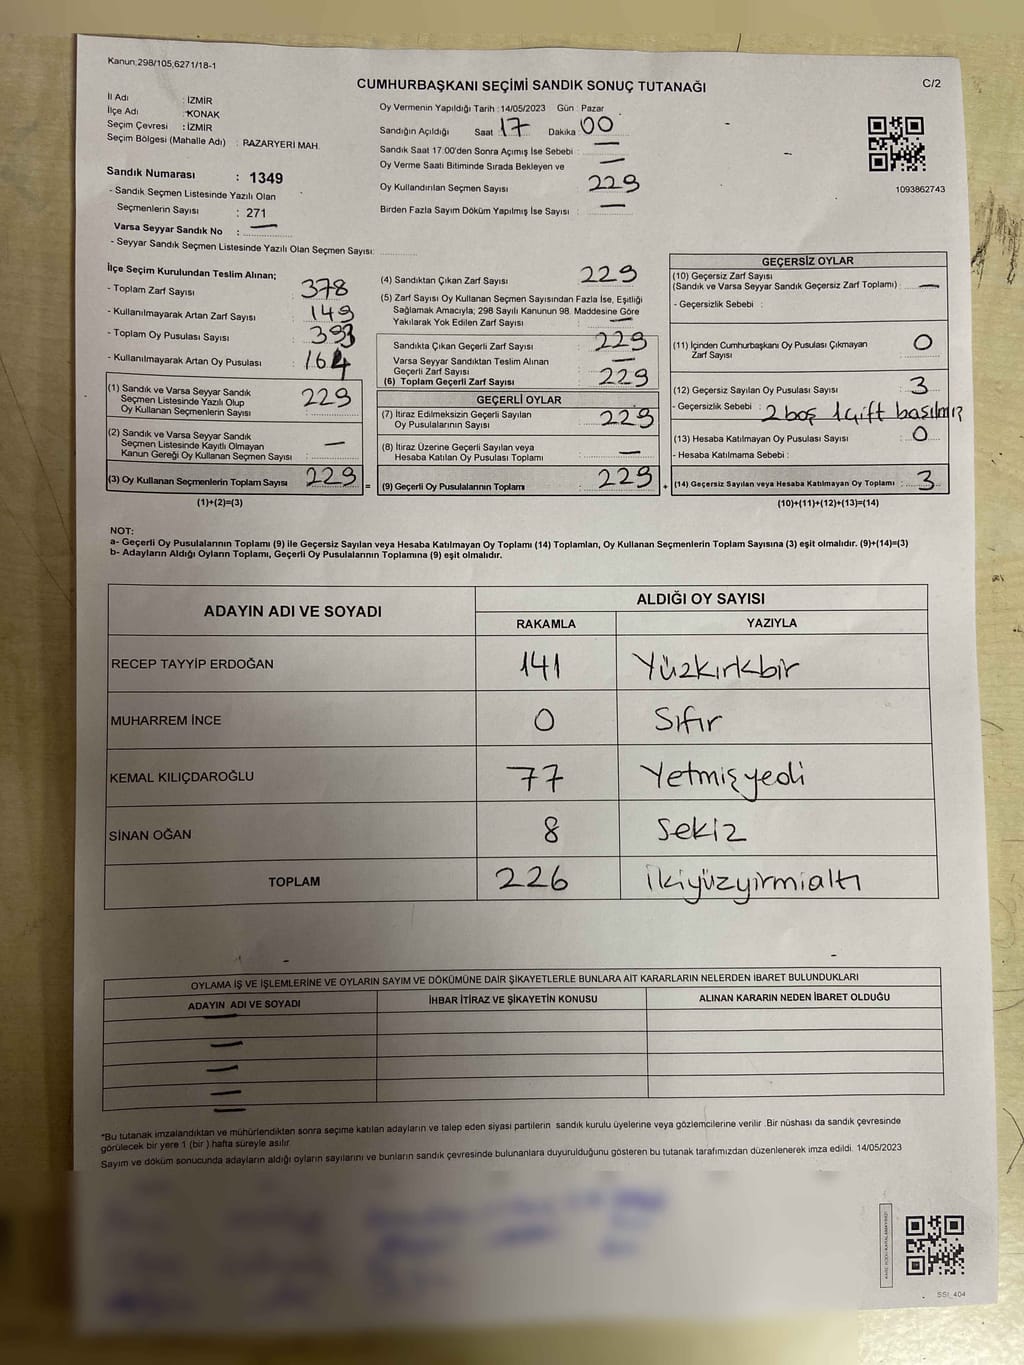 Kanun,298/105,6271/18-1
CUMHURBAŞKANI SEÇİMİ SANDIK SONUÇ TUTANAĞI
C/2
İl Adı : İZMİR
İlçe Adı : KONAK
Seçim Çevresi : İZMİR
Seçim Bölgesi (Mahalle Adı) : PAZARYERİ MAH.
Sandık Numarası : 1349
- Sandık Seçmen Listesinde Yazılı Olan
Seçmenlerin Sayısı : 271
Varsa Seyyar Sandık No : —
- Seyyar Sandık Seçmen Listesinde Yazılı Olan Seçmen Sayısı:
Oy Vermenin Yapıldığı Tarih : 14/05/2023 Gün : Pazar
Sandığın Açıldığı Saat 17 Dakika 00
Sandık Saat 17:00'den Sonra Açımış İse Sebebi : —
Oy Verme Saati Bitiminde Sırada Bekleyen ve —
Oy Kullandırılan Seçmen Sayısı 229
Birden Fazla Sayım Döküm Yapılmış İse Sayısı : —
1093862743
İlçe Seçim Kurulundan Teslim Alınan;
- Toplam Zarf Sayısı : 378
- Kullanılmayarak Artan Zarf Sayısı : 149
- Toplam Oy Pusulası Sayısı : 393
- Kullanılmayarak Artan Oy Pusulası : 164
(1) Sandık ve Varsa Seyyar Sandık
Seçmen Listesinde Yazılı Olup
Oy Kullanan Seçmenlerin Sayısı : 229
(2) Sandık ve Varsa Seyyar Sandık
Seçmen Listesinde Kayıtlı Olmayan
Kanun Gereği Oy Kullanan Seçmen Sayısı : —
(3) Oy Kullanan Seçmenlerin Toplam Sayısı : 229 =
(1)+(2)=(3)
(4) Sandıktan Çıkan Zarf Sayısı : 229
(5) Zarf Sayısı Oy Kullanan Seçmen Sayısından Fazla İse, Eşitliği
Sağlamak Amacıyla; 298 Sayılı Kanunun 98. Maddesine Göre
Yakılarak Yok Edilen Zarf Sayısı : —
Sandıkta Çıkan Geçerli Zarf Sayısı : 229
Varsa Seyyar Sandıktan Teslim Alınan
Geçerli Zarf Sayısı : —
(6) Toplam Geçerli Zarf Sayısı : 229
GEÇERLİ OYLAR
(7) İtiraz Edilmeksizin Geçerli Sayılan
Oy Pusulalarının Sayısı : 229
(8) İtiraz Üzerine Geçerli Sayılan veya
Hesaba Katılan Oy Pusulası Toplamı : —
(9) Geçerli Oy Pusulalarının Toplamı : 229 +
GEÇERSİZ OYLAR
(10) Geçersiz Zarf Sayısı
(Sandık ve Varsa Seyyar Sandık Geçersiz Zarf Toplamı) : —
- Geçersizlik Sebebi :
(11) İçinden Cumhurbaşkanı Oy Pusulası Çıkmayan
Zarf Sayısı : 0
(12) Geçersiz Sayılan Oy Pusulası Sayısı : 3
- Geçersizlik Sebebi : 2 boş 1 çift basılmış
(13) Hesaba Katılmayan Oy Pusulası Sayısı : 0
- Hesaba Katılmama Sebebi :
(14) Geçersiz Sayılan veya Hesaba Katılmayan Oy Toplamı : 3
(10)+(11)+(12)+(13)=(14)
NOT:
a- Geçerli Oy Pusulalarının Toplamı (9) ile Geçersiz Sayılan veya Hesaba Katılmayan Oy Toplamı (14) Toplamları, Oy Kullanan Seçmenlerin Toplam Sayısına (3) eşit olmalıdır. (9)+(14)=(3)
b- Adayların Aldığı Oyların Toplamı, Geçerli Oy Pusulalarının Toplamına (9) eşit olmalıdır.
ADAYIN ADI VE SOYADI
ALDIĞI OY SAYISI
RAKAMLA YAZIYLA
RECEP TAYYİP ERDOĞAN 141 Yüzkırkbir
MUHARREM İNCE 0 Sıfır
KEMAL KILIÇDAROĞLU 77 Yetmişyedi
SİNAN OĞAN 8 Sekiz
TOPLAM 226 İkiyüzyirmialtı
OYLAMA İŞ VE İŞLEMLERİNE VE OYLARIN SAYIM VE DÖKÜMÜNE DAİR ŞİKAYETLERLE BUNLARA AİT KARARLARIN NELERDEN İBARET BULUNDUKLARI
ADAYIN ADI VE SOYADI İHBAR İTİRAZ VE ŞİKAYETİN KONUSU ALINAN KARARIN NEDEN İBARET OLDUĞU
*Bu tutanak imzalandıktan ve mühürlendikten sonra seçime katılan adayların ve talep eden siyasi partilerin sandık kurulu üyelerine veya gözlemcilerine verilir .Bir nüshası da sandık çevresinde
görülecek bir yere 1 (bir ) hafta süreyle asılır.
Sayım ve döküm sonucunda adayların aldığı oyların sayılarını ve bunların sandık çevresinde bulunanlara duyurulduğunu gösteren bu tutanak tarafımızdan düzenlenerek imza edildi. 14/05/2023
SSI_404